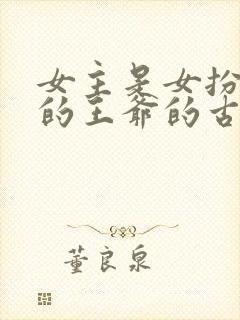 女主是女扮
的王爷的古
董良泉